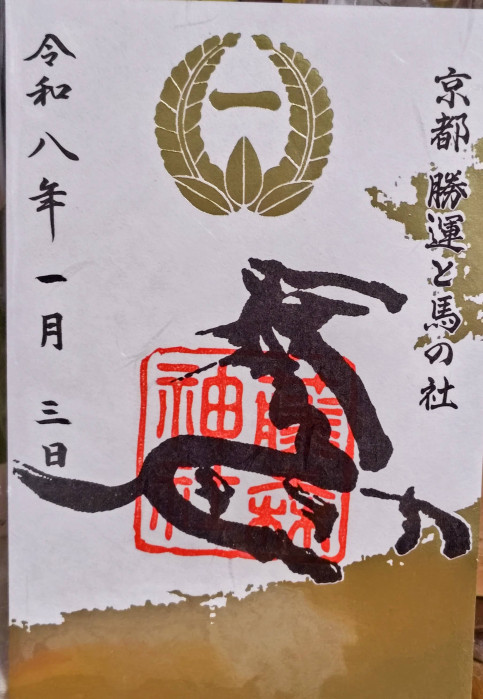 京都 勝運と馬の社
一
藤森
神社
令和八年 一月 三日